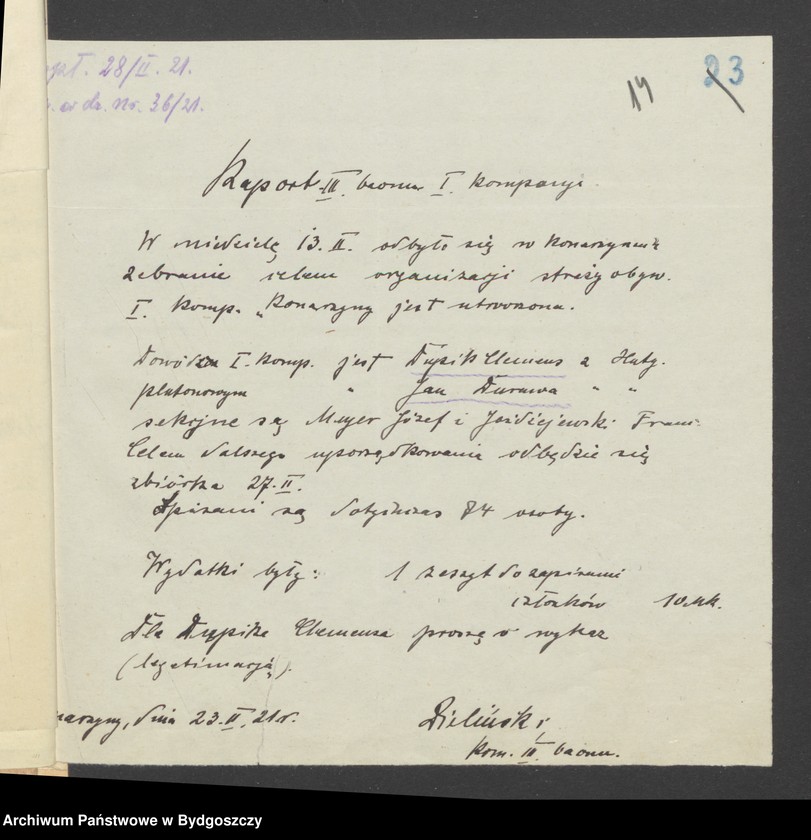 28/II. 21.
dz. Nr. 36/21.
14
23
Raport III baonu I. Kompanji.
W niedzielę 13. II. odbyło się w Konarzynach
zebranie celem organizacji straży obyw.
I. Komp. „Konarzyny jest utworzona.
Dowódcą I. Komp. jest Clemens z Huty.
plutonowym " Jan Durawa " "
sekcyjne są Meyer Józef i Jaździejewski Fran:
Celem dalszego uporządkowania odbędzie się
zbiórka 27. II.
Spisani są dotychczas 84 osoby.
Wydatki były: 1 zeszyt do zapisania
członków 10 mk.
Dla Clemensa proszę o wykaz
(legitimacją).
dnia 23. II. 21 r.
Zieliński
Kom. III baonu.
Archiwum Państwowe w Bydgoszczy